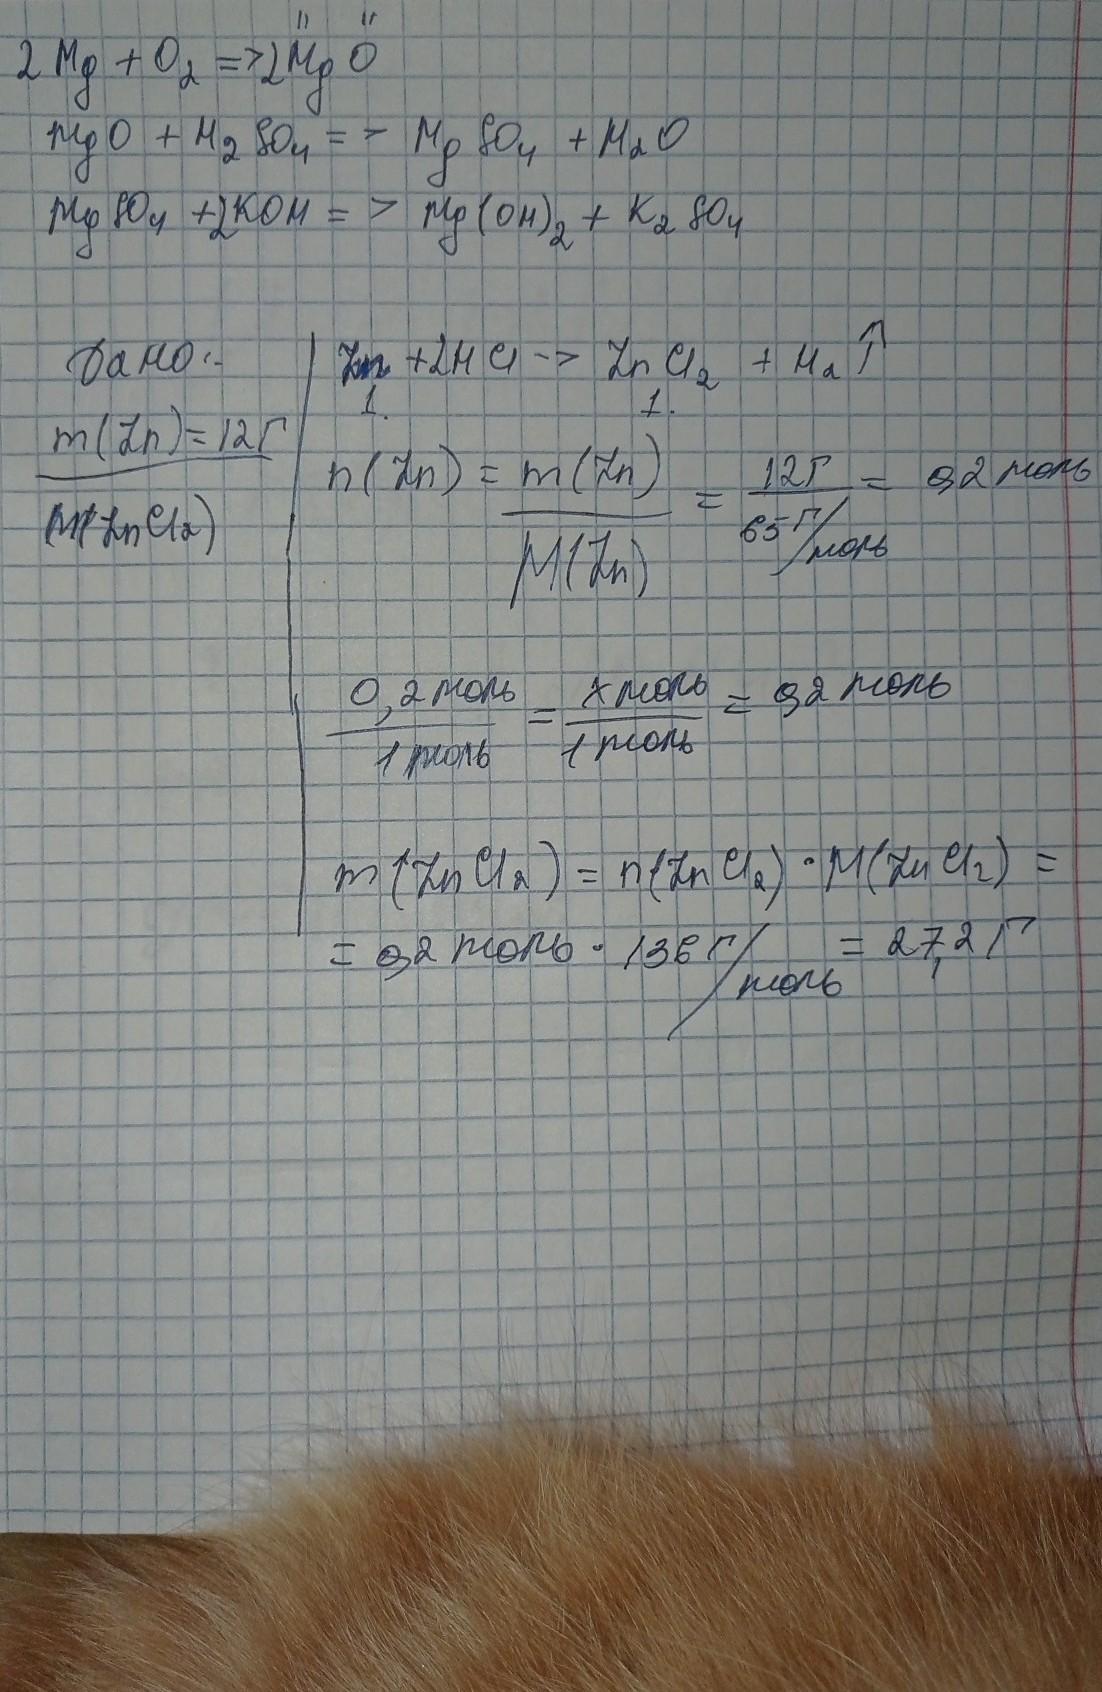 2Mg + O₂ => 2MgO
MgO + H₂SO₄ => MgSO₄ + H₂O
MgSO₄ + 2KOH => Mg(OH)₂ + K₂SO₄
Дано:
m(Zn) = 12г
m(ZnCl₂)
Zn + 2HCl -> ZnCl₂ + H₂↑
1. 1.
n(Zn) = m(Zn) / M(Zn) = 12г / 65 г/моль = 0,2 моль
0,2 моль / 1 моль = x моль / 1 моль = 0,2 моль
m(ZnCl₂) = n(ZnCl₂) · M(ZnCl₂) =
= 0,2 моль · 136 г/моль = 27,2 г